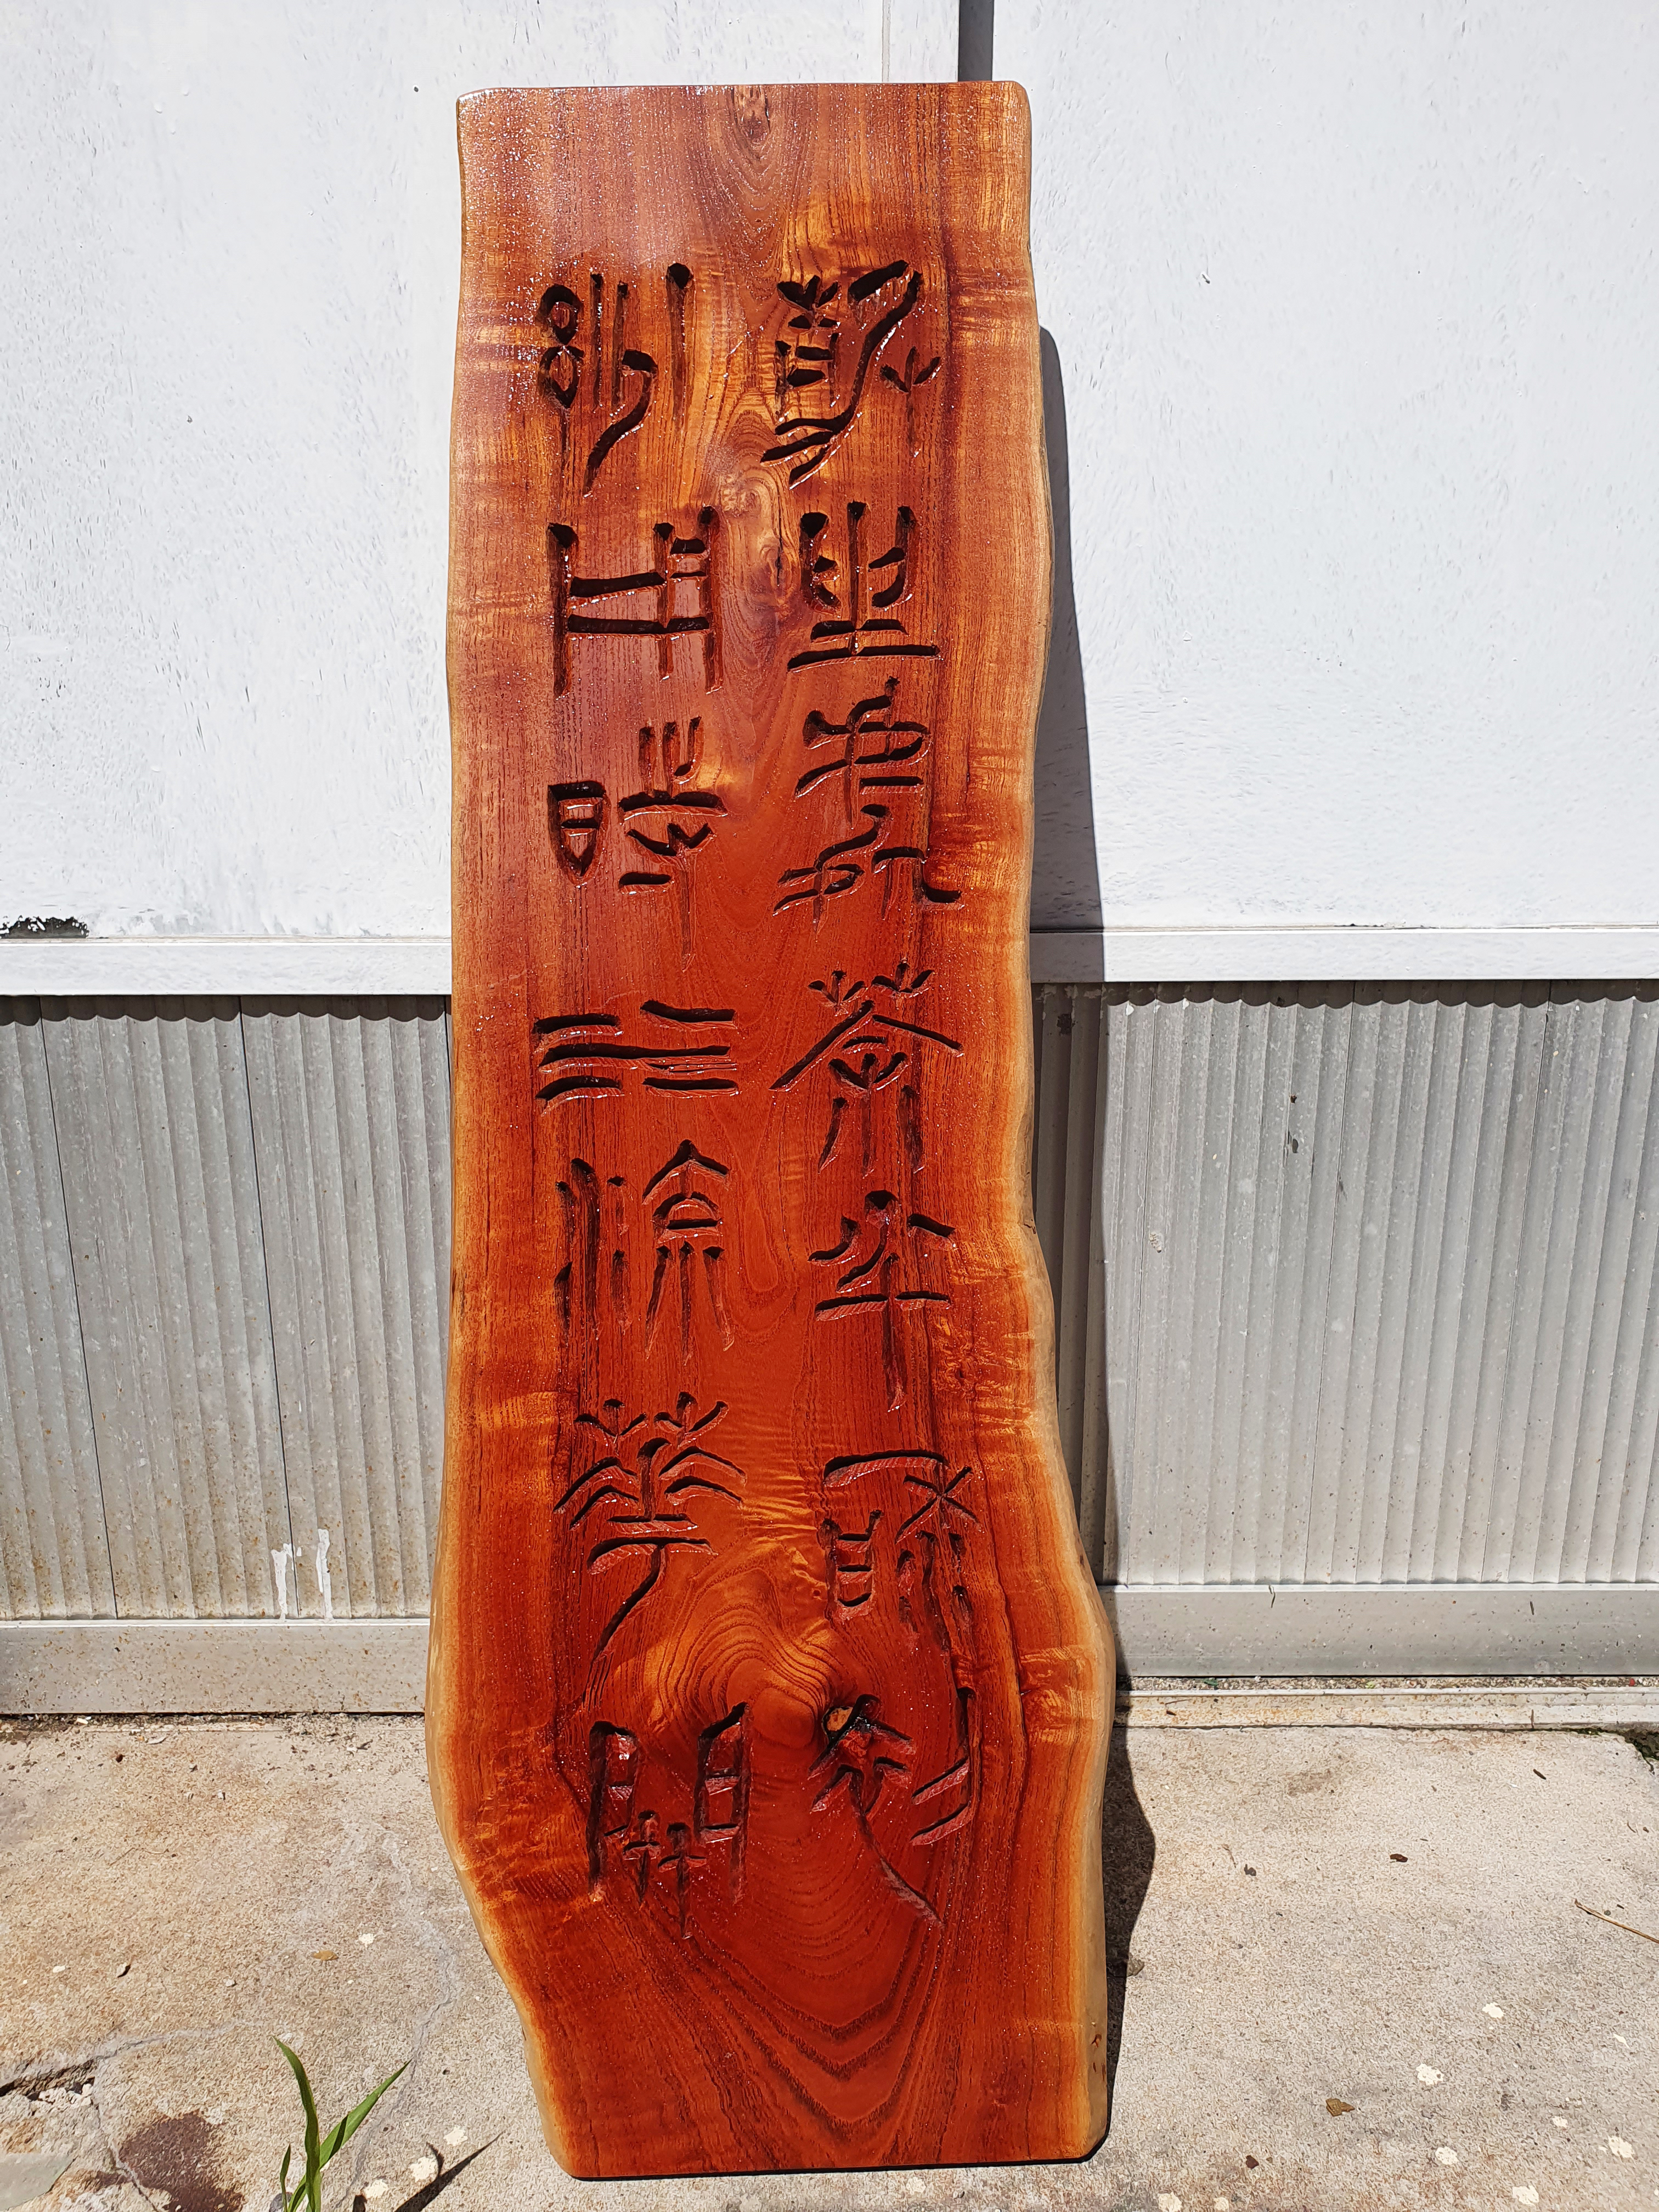 靜坐處茶半香初
妙用時水流花開